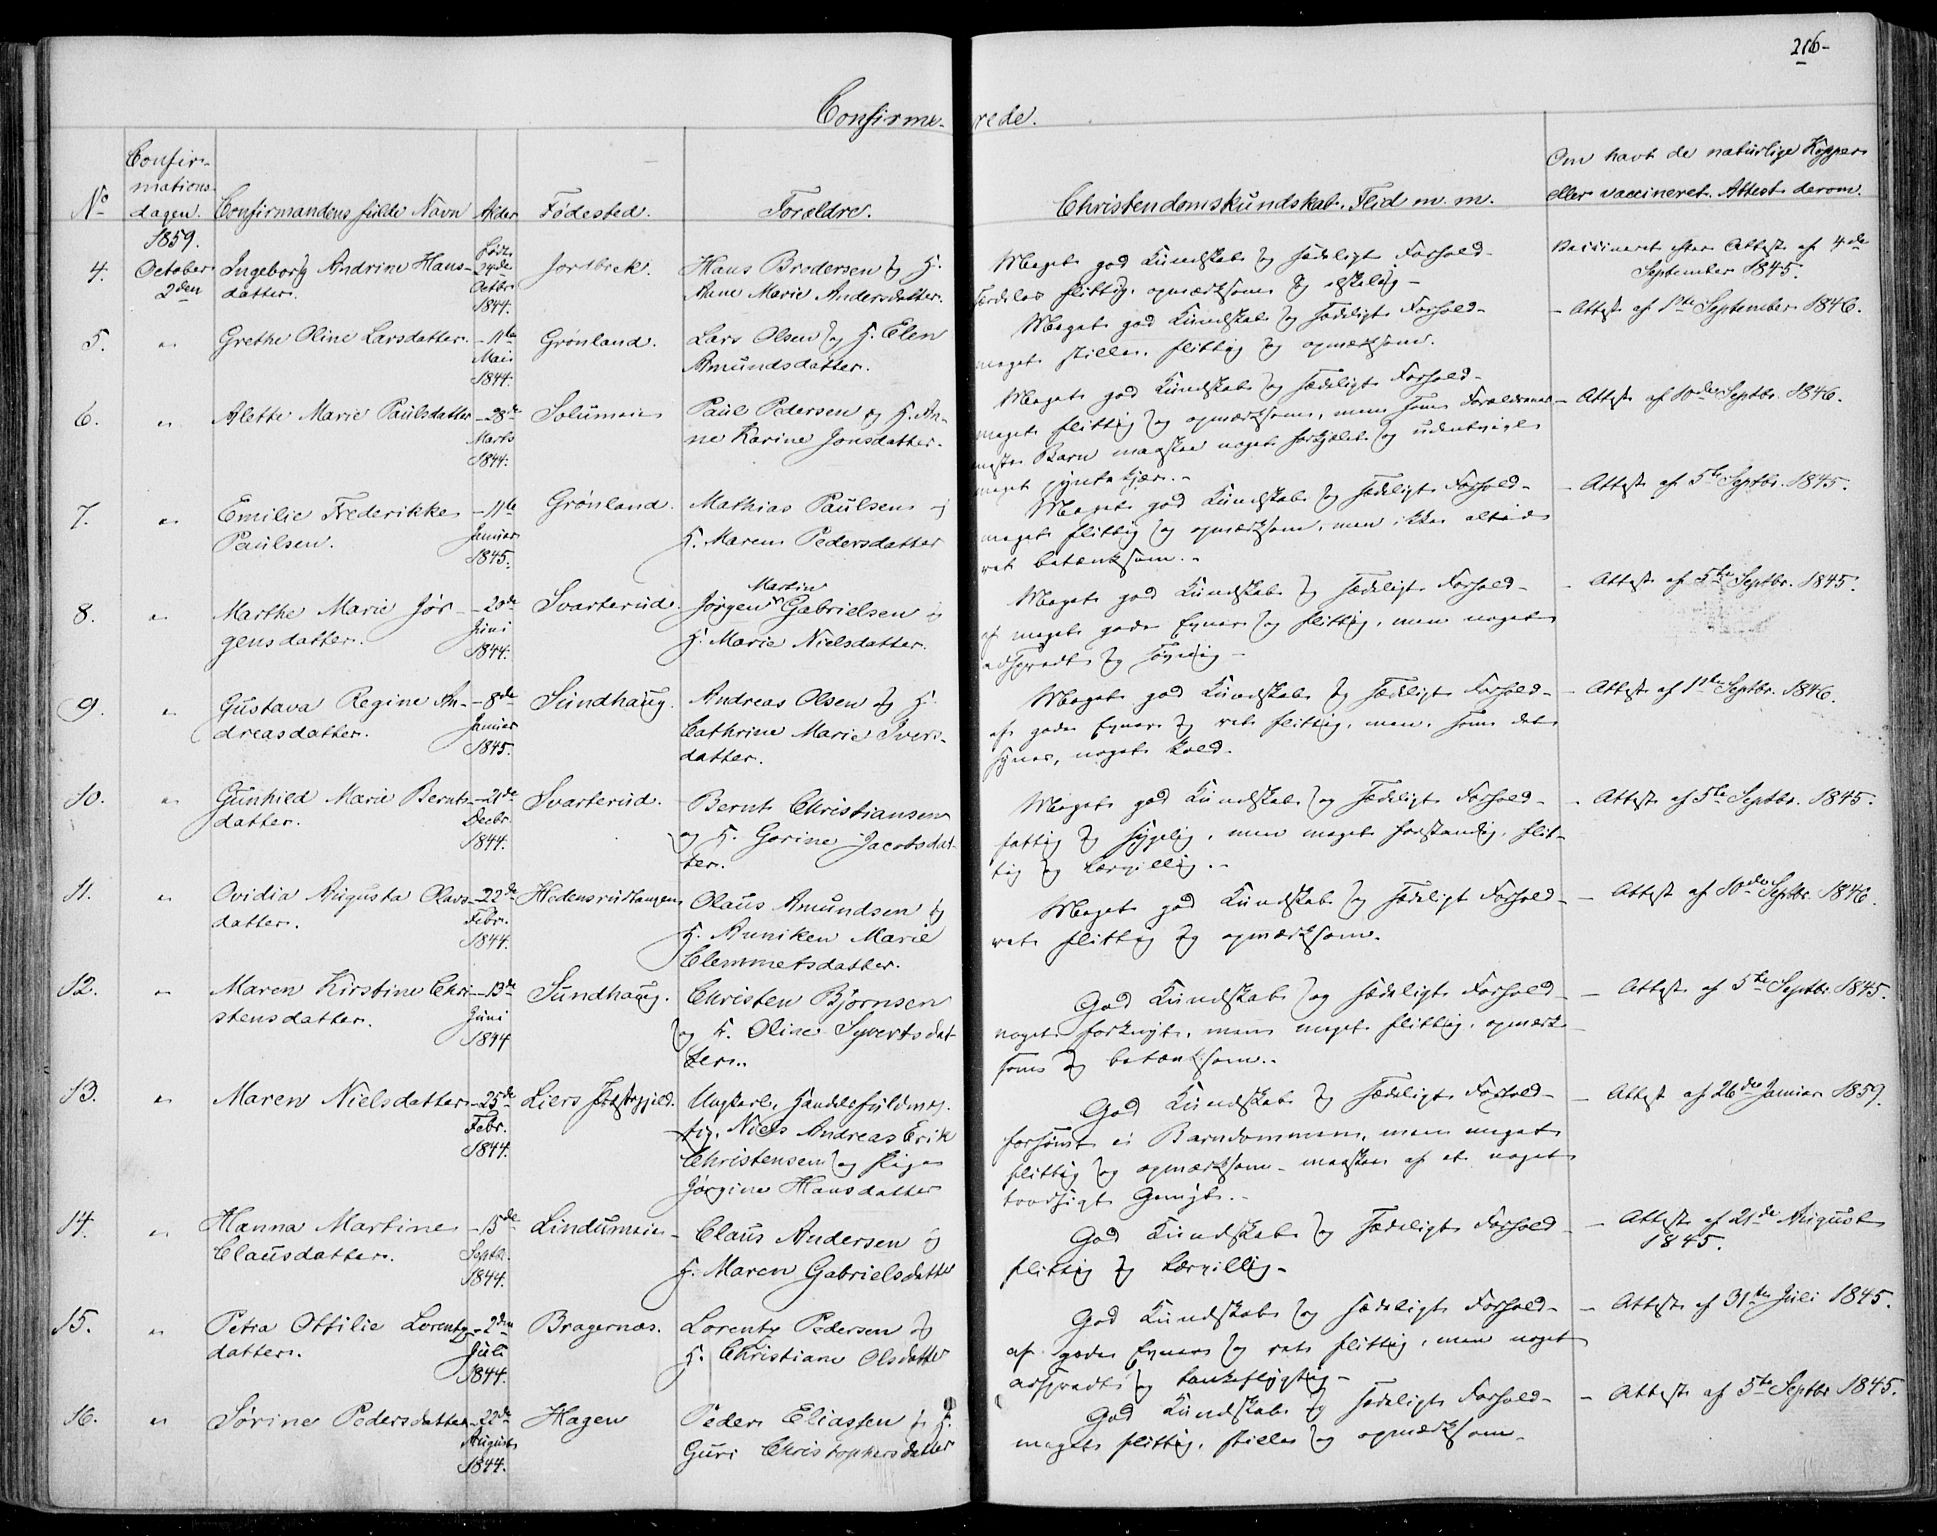 216-
Confirme- rede.
No
Confir-
mations-
dagen.
Confirmandens fulde Navn
Alder
Fødested.
Forældre.
Christendomskundskab, Flid m. m.
Om havt de naturlige Kopper
eller vaccineret. Attest derom.
1859.
4.
October
2den
Ingeborg Andrine Hans-
datter.
Født
24de
Octbr
1844.
Jordbrek.
Hans Brodersen og H.
Anne Marie Andersdatter.
Meget god Kundskab og sædeligt Forhold-
flittig, opmærksom og elskelig-
Vaccineret efter Attest af 4de
September 1845.
5.
"
Grethe Oline Larsdatter.
- 11te
Mai
1844.
Grønland.
Lars Olsen og H. Elen
Amundsdatter.
Meget god Kundskab og sædeligt Forhold-
meget stille, flittig og opmærksom.
- Attest af 1ste September 1846.
6.
"
Alette Marie Paulsdatter
- 28de
Marts
1844.
Solumeie
Paul Pedersen og H. An-
ne Karine Jonsdatter.
Meget god Kundskab og sædeligt Forhold-
meget flittig og opmærksom, men som Forældrenes
Barn maaskee noget forkjælet og
meget pyntekjær.-
- Attest af 10de Septbr. 1846.
7.
"
Emilie Frederikke
Paulsen.
- 11te
Januar
1845.
Grønland.
Mathias Paulsen og
H. Maren Pedersdatter
Meget god Kundskab og sædeligt Forhold-
meget flittig og opmærksom, men ikke altid
ret betænksom.-
- Attest af 5te Septbr. 1845.
8.
"
Marthe Marie Jør-
gensdatter.
- 20de
Juni
1844.
Svarterud.
Martin
Jørgen Gabrielsen og
H. Marie Nielsdatter.
Meget god Kundskab og sædeligt Forhold-
af meget gode Evner og flittig, men noget
adspredt og
- Attest af 5te Septbr. 1845.
9.
"
Gustava Regine An-
dreasdatter.
- 8de
Januar
1845.
Sundhaug.
Andreas Olsen og H.
Cathrine Marie Ivers-
datter.
Meget god Kundskab og sædeligt Forhold-
af gode Evner og ret flittig, men, som det
synes, noget kold.
- Attest af 1ste Septbr. 1846.
10.
"
Gunhild Marie Bernts-
datter.
- 21de
Decbr.
1844.
Svarterud.
Bernt Christiansen
og H. Gorine Jacobsdat-
ter.
Meget god Kundskab og sædeligt Forhold-
fattig og sygelig, men meget forstandig, flit-
tig og lærvillig.-
- Attest af 5te Septbr. 1845.
11.
"
Ovidia Augusta Olavs-
datter.
- 22de
Febr.
1844.
Hedensrudhagen
Olaus Amundsen og
H. Anniken Marie
Clemmetsdatter.
Meget god Kundskab og sædeligt Forhold-
ret flittig og opmærksom.
- Attest af 10de Septbr. 1846.
12.
"
Maren Kirstine Chri-
stensdatter.
- 13de
Juni
1844
Sundhaug.
Christen Bjørnsen
og H. Oline Syvertsdat-
ter.
God Kundskab og sædeligt Forhold-
noget forknyt, men meget flittig, opmærk-
som og betænksom.
- Attest af 5te Septbr. 1845.
13.
"
Maren Nielsdatter
- 25de
Febr.
1844.
Liers Præstegjeld.
Ungkarl, Handelsfuldmæg-
tig, Niels Andreas Erik
Christensen og Pige
Jørgine Hansdatter
God Kundskab og sædeligt Forhold-
forsømt i Barndommen, men meget
flittig og opmærksom- maaskee af et noget
tvedsigt Gemyt.-
- Attest af 26de Januar 1859.
14.
"
Hanna Martine
Clausdatter.
- 15de
Septb.
1844.
Lindumeie-
Claus Andersen og
H. Maren Gabrielsdatter
God Kundskab og sædeligt Forhold
flittig og lærvillig-
- Attest af 21de August
1845.
15.
"
Petra Ottilie Lorentz-
datter.
- 2den
Juli
1844.
Bragernæs.
Lorentz Pedersen og
H. Christiane Olsdatter
God Kundskab og sædeligt Forhold-
af gode Evner og ret flittig, men noget
adspredt og tankeflygtig-
- Attest af 31te Juli 1845.
16.
"
Sørine Pedersdatter
- 22de
August
1844.
Hagen
Peder Eliassen og H.
Guri Christophersdatter
God Kundskab og sædeligt Forhold-
meget flittig, stille og opmærksom-
- Attest af 5te Septbr 1845.